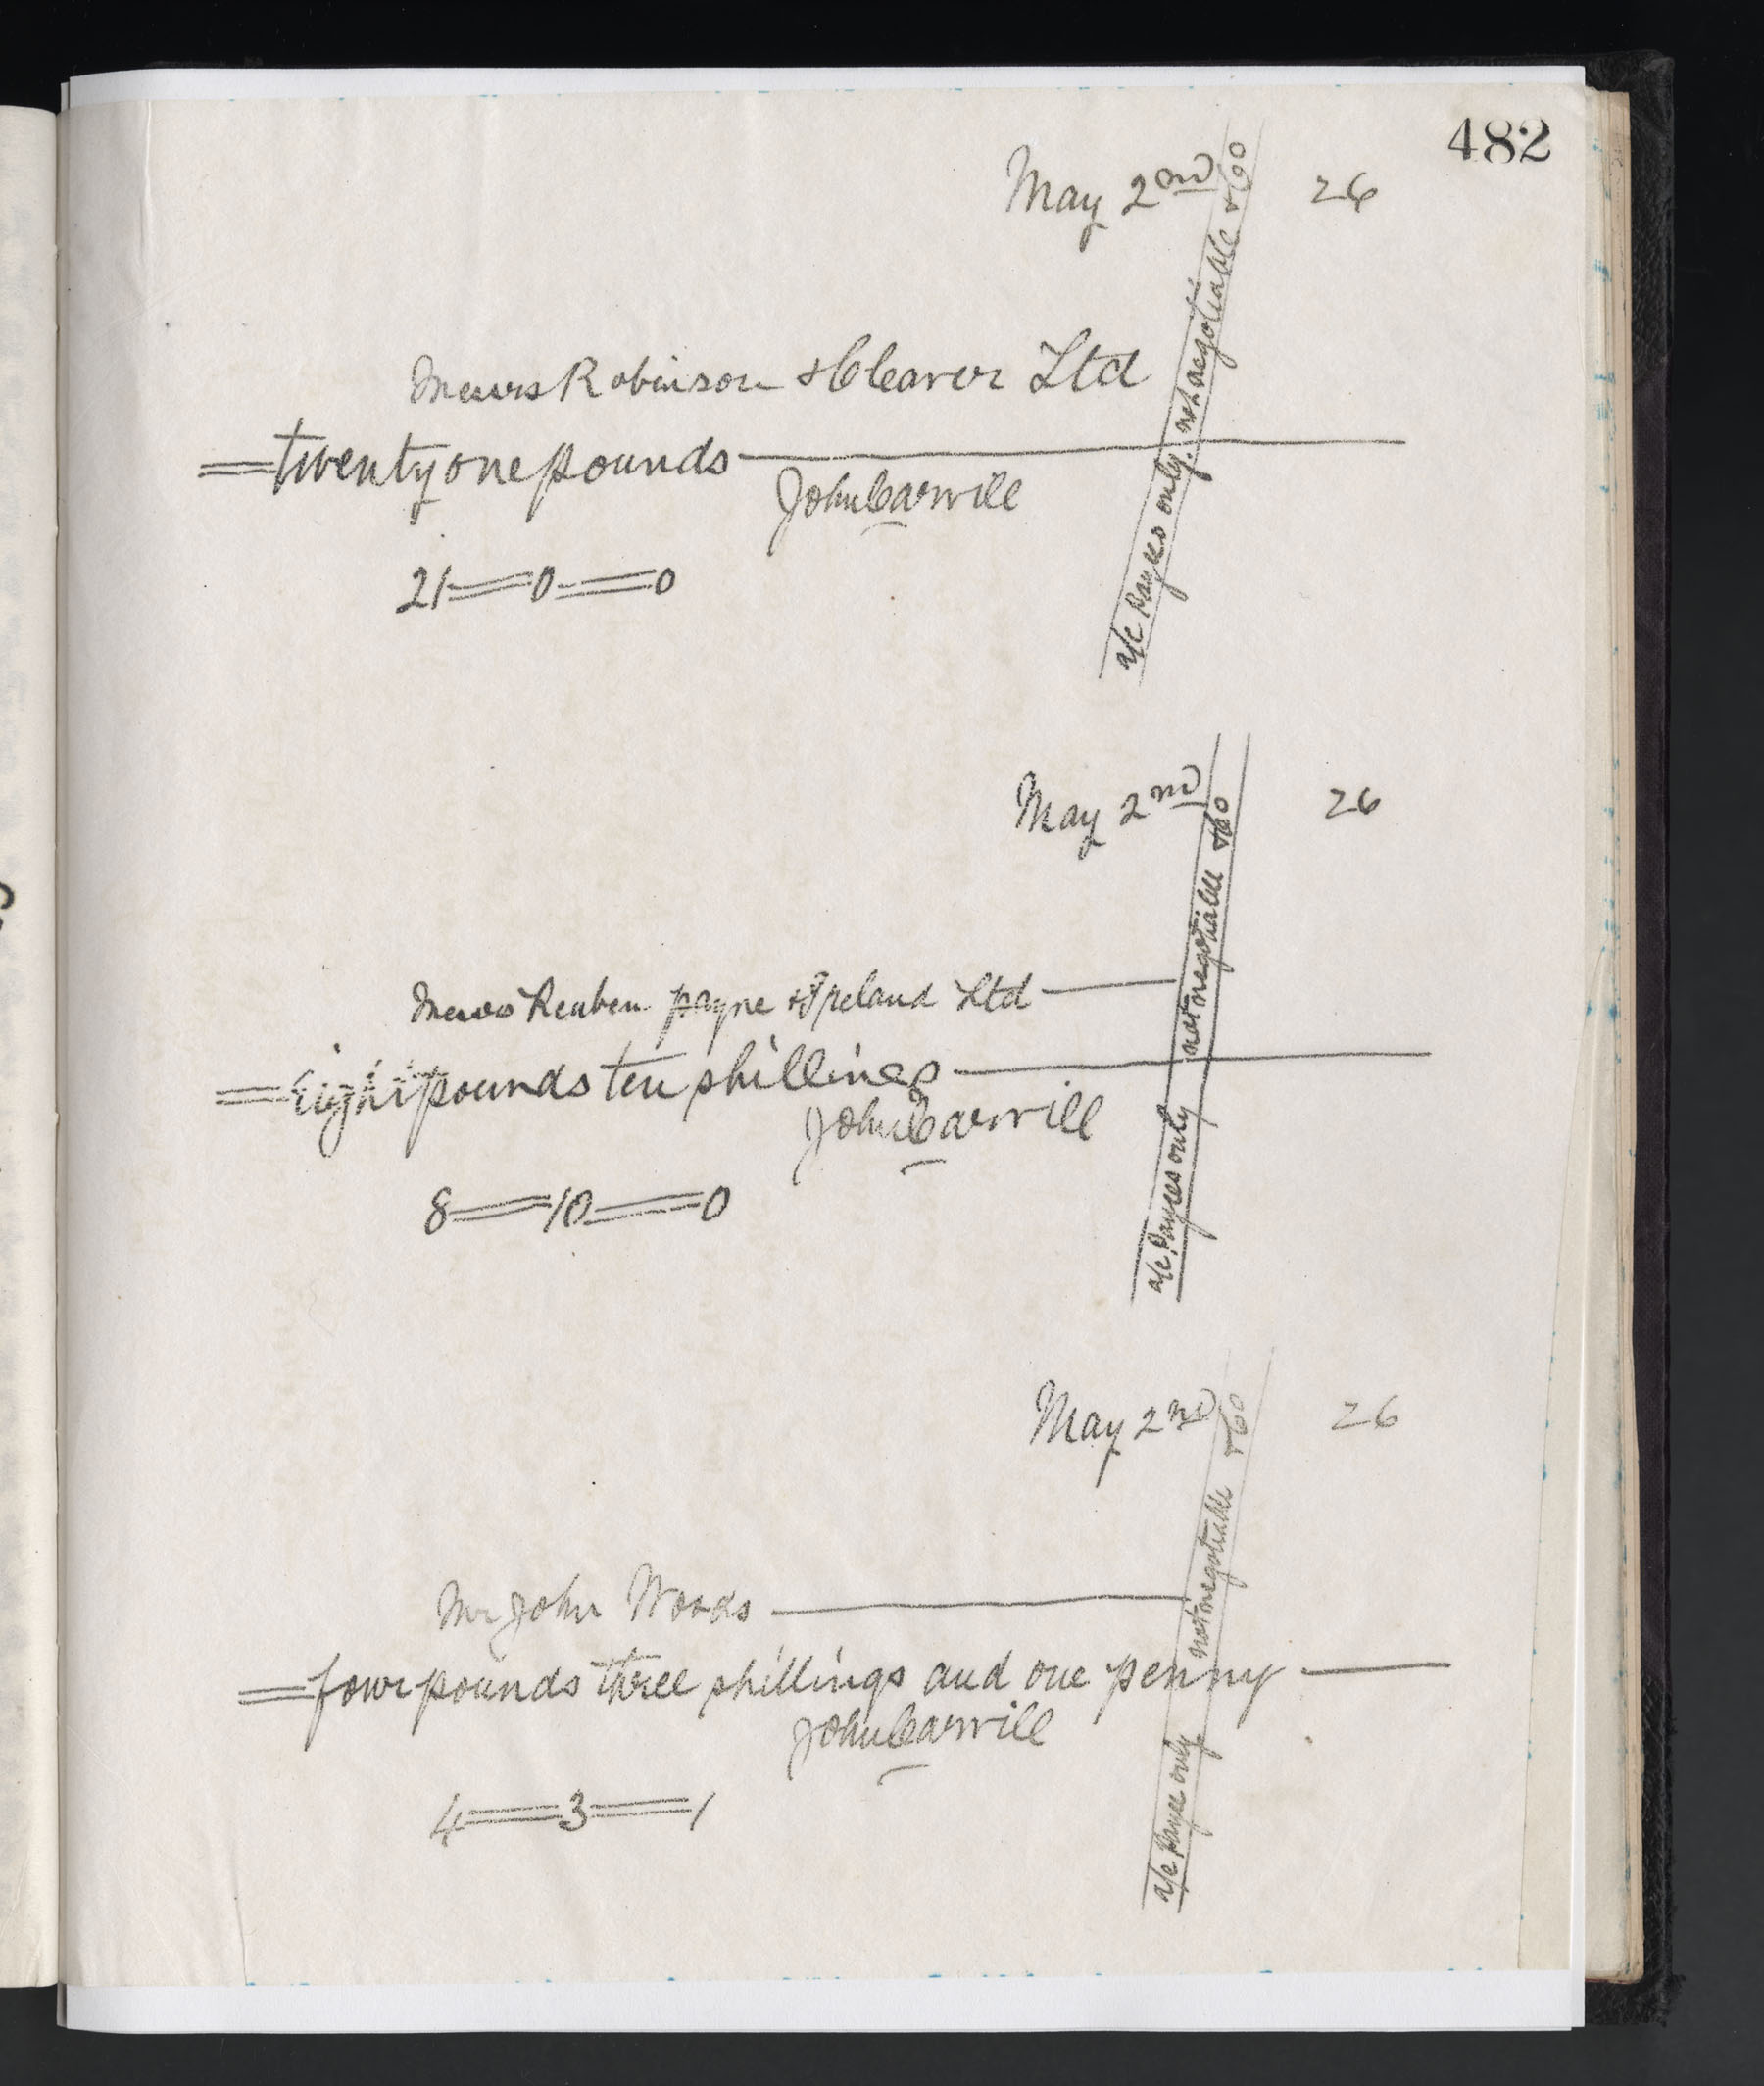 482
May 2nd 26
Messrs Robinson & Cleaver Ltd
twenty one pounds
John Carvill
21 = 0 = 0
a/c Payees only. not negotiable & Co
May 2nd 26
Messrs Reuben payne & Ireland Ltd
Eight pounds ten shillings
John Carvill
8 = 10 = 0
a/c Payees only not negotiable & Co
May 2nd 26
Mr John Woods
four pounds three shillings and one penny
John Carvill
4 = 3 = 1
a/c Payee only not negotiable & Co